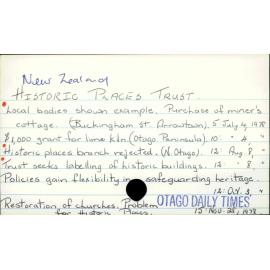 New Zealand
HISTORIC PLACES TRUST.
Local bodies shown example. Purchase of miner's
cottage. (Buckingham St. Arrowtown). 5 July 4, 1978
$1,000 grant for lime kiln. (Otago Peninsula). 10: " 4, "
Historic places branch rejected. (N. Otago). 12: Aug. 8, "
Trust seeks labelling of historic buildings. 12: " 8, "
Policies gain flexibility in safeguarding heritage.
12: Oct. 3, "
Restoration of churches. Problem
for Historic Places.
OTAGO DAILY TIMES
15 Nov. 28, 1978